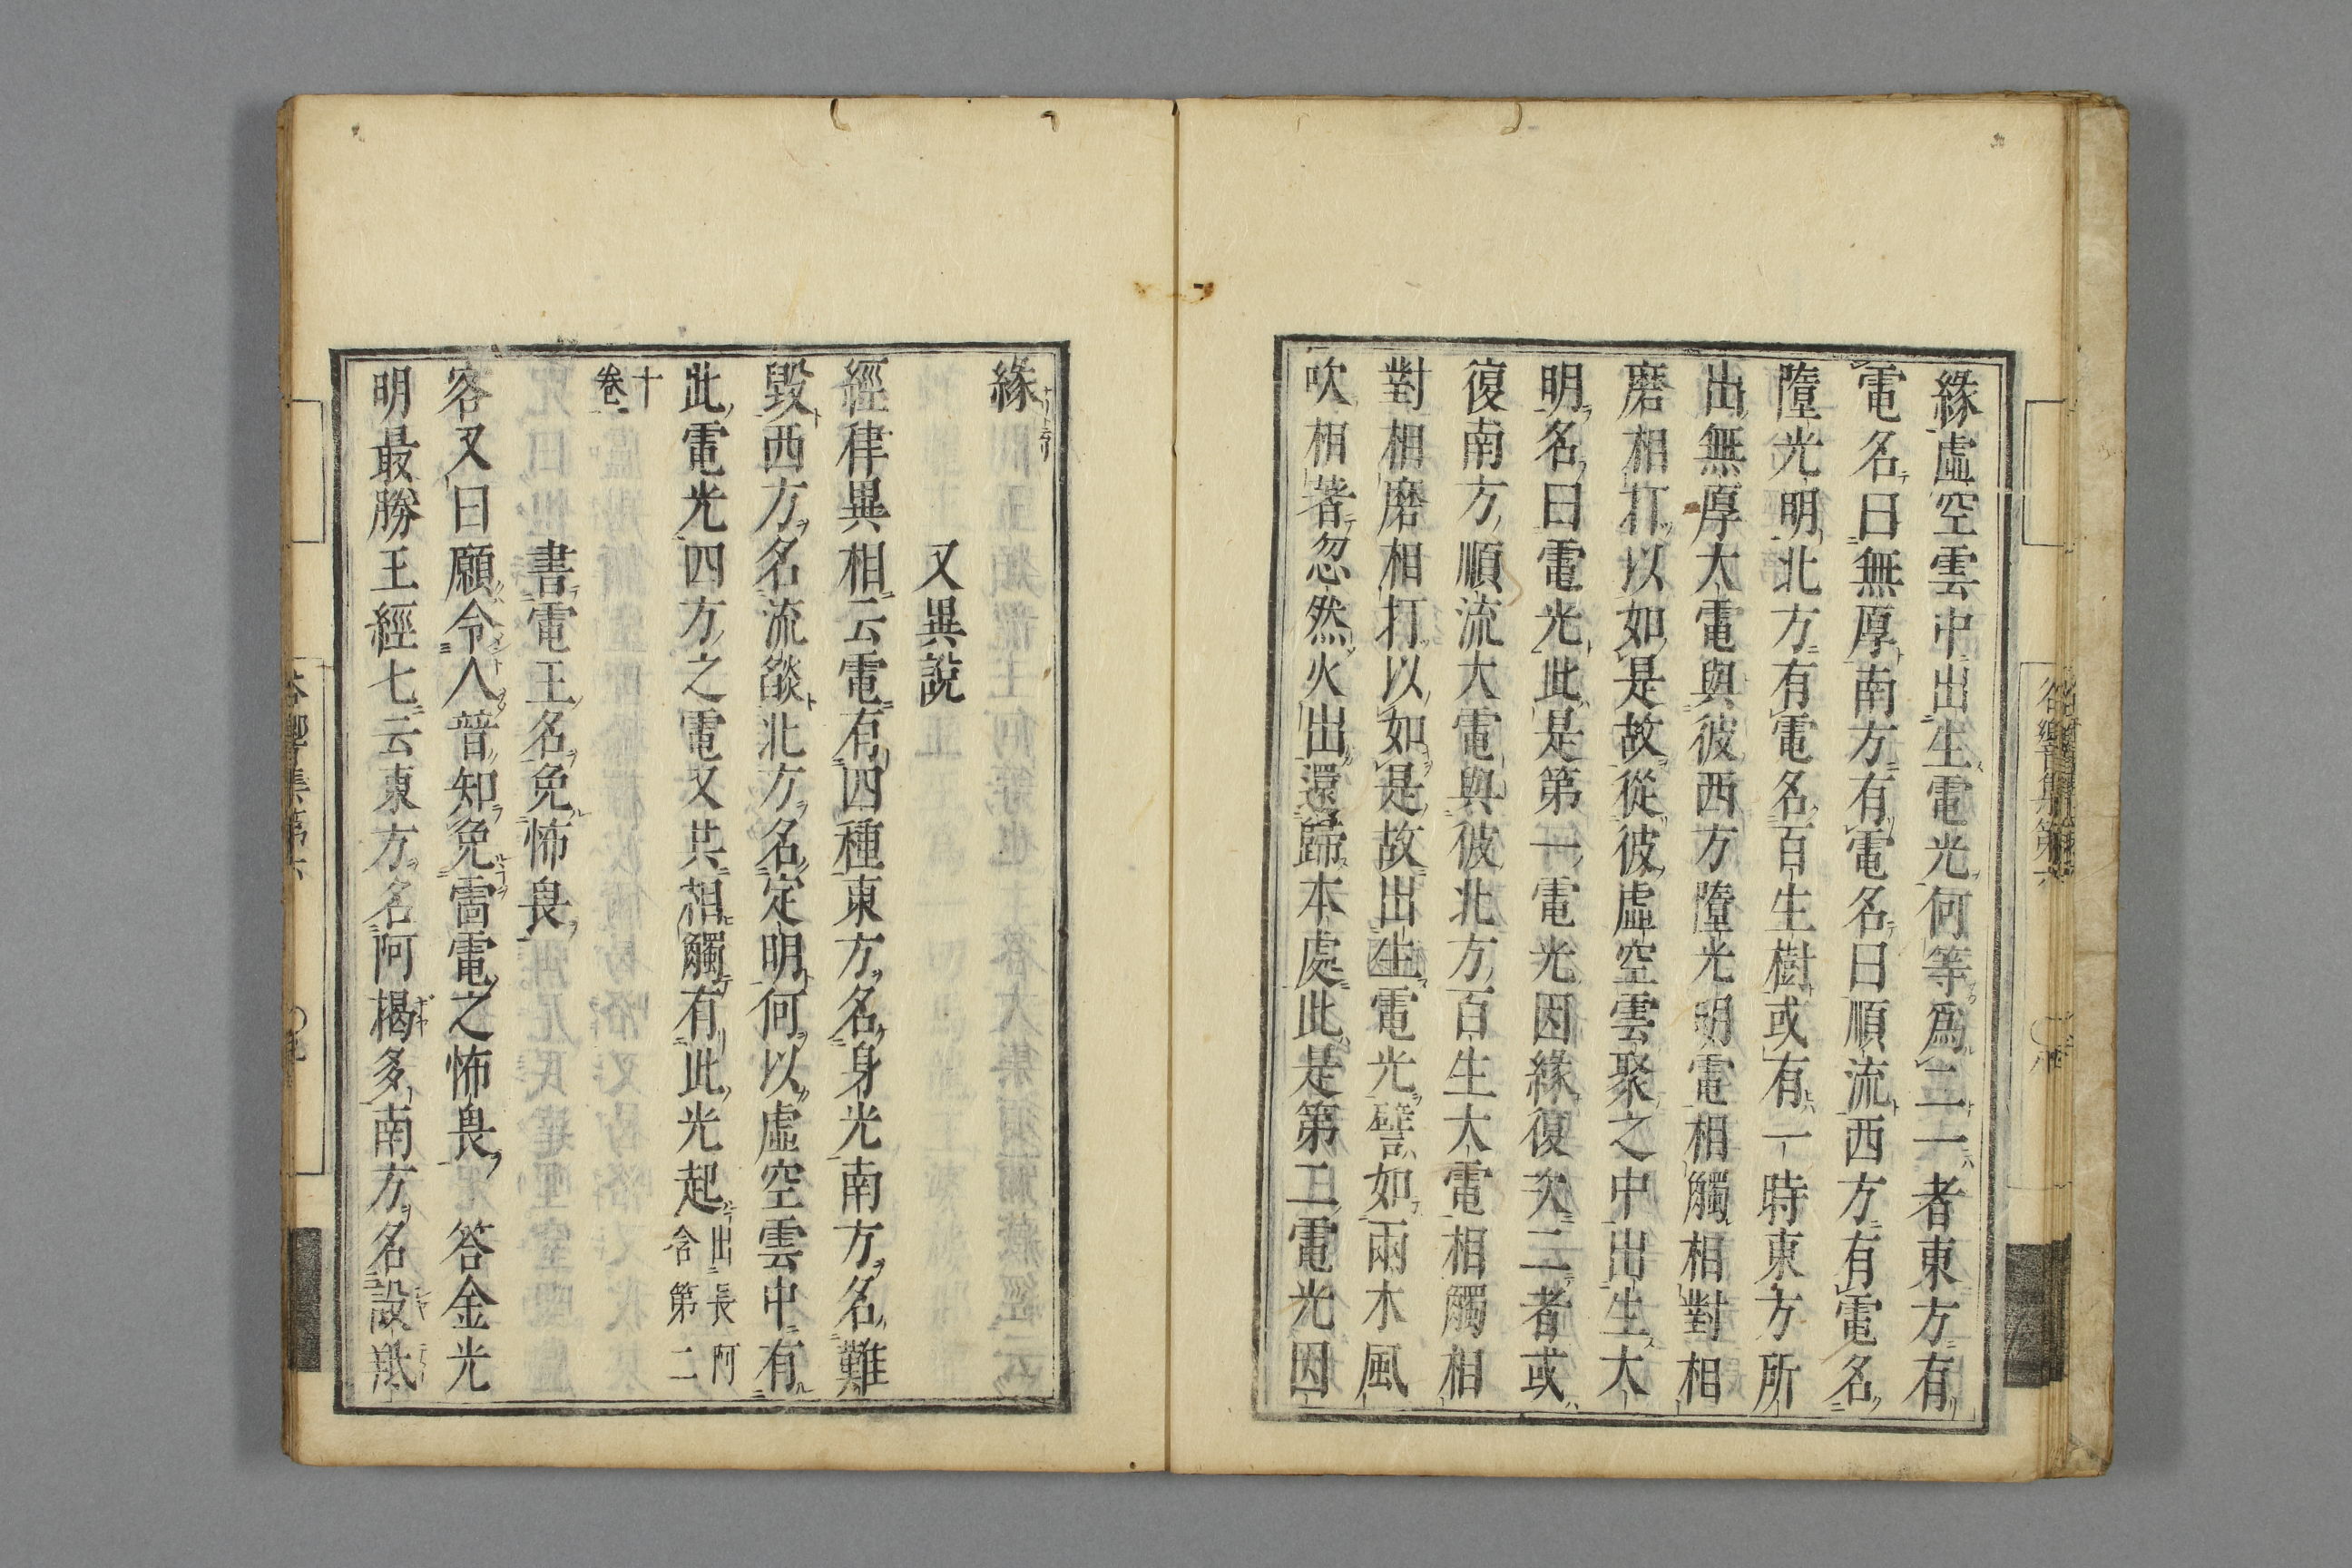 緣虛空雲中出生電光何等爲二一者東方有
電名曰無厚南方有電名曰順流西方有電名
墮光明北方有電名百生樹或有一時東方所
出無厚大電與彼西方墮光明電相觸相對相
磨相打以如是故從彼虛空雲聚之中出生大
明名曰電光此是第一電光因緣復次二者或
復南方順流大電與彼北方百生大電相觸相
對相磨相打以如是故出生電光譬如兩木風
吹相著忽然火出還歸本處此是第二電光因
緣
又異說
經律異相云電有四種東方名身光南方名難
毀西方名流燄北方名定明何以虛空雲中有
此電光四方之電又共相觸有此光起出長阿含第二
十卷
書電王名免怖畏
客又曰願令人普知免雷電之怖畏 答金光
明最勝王經七云東方名阿楬多南方名設羝